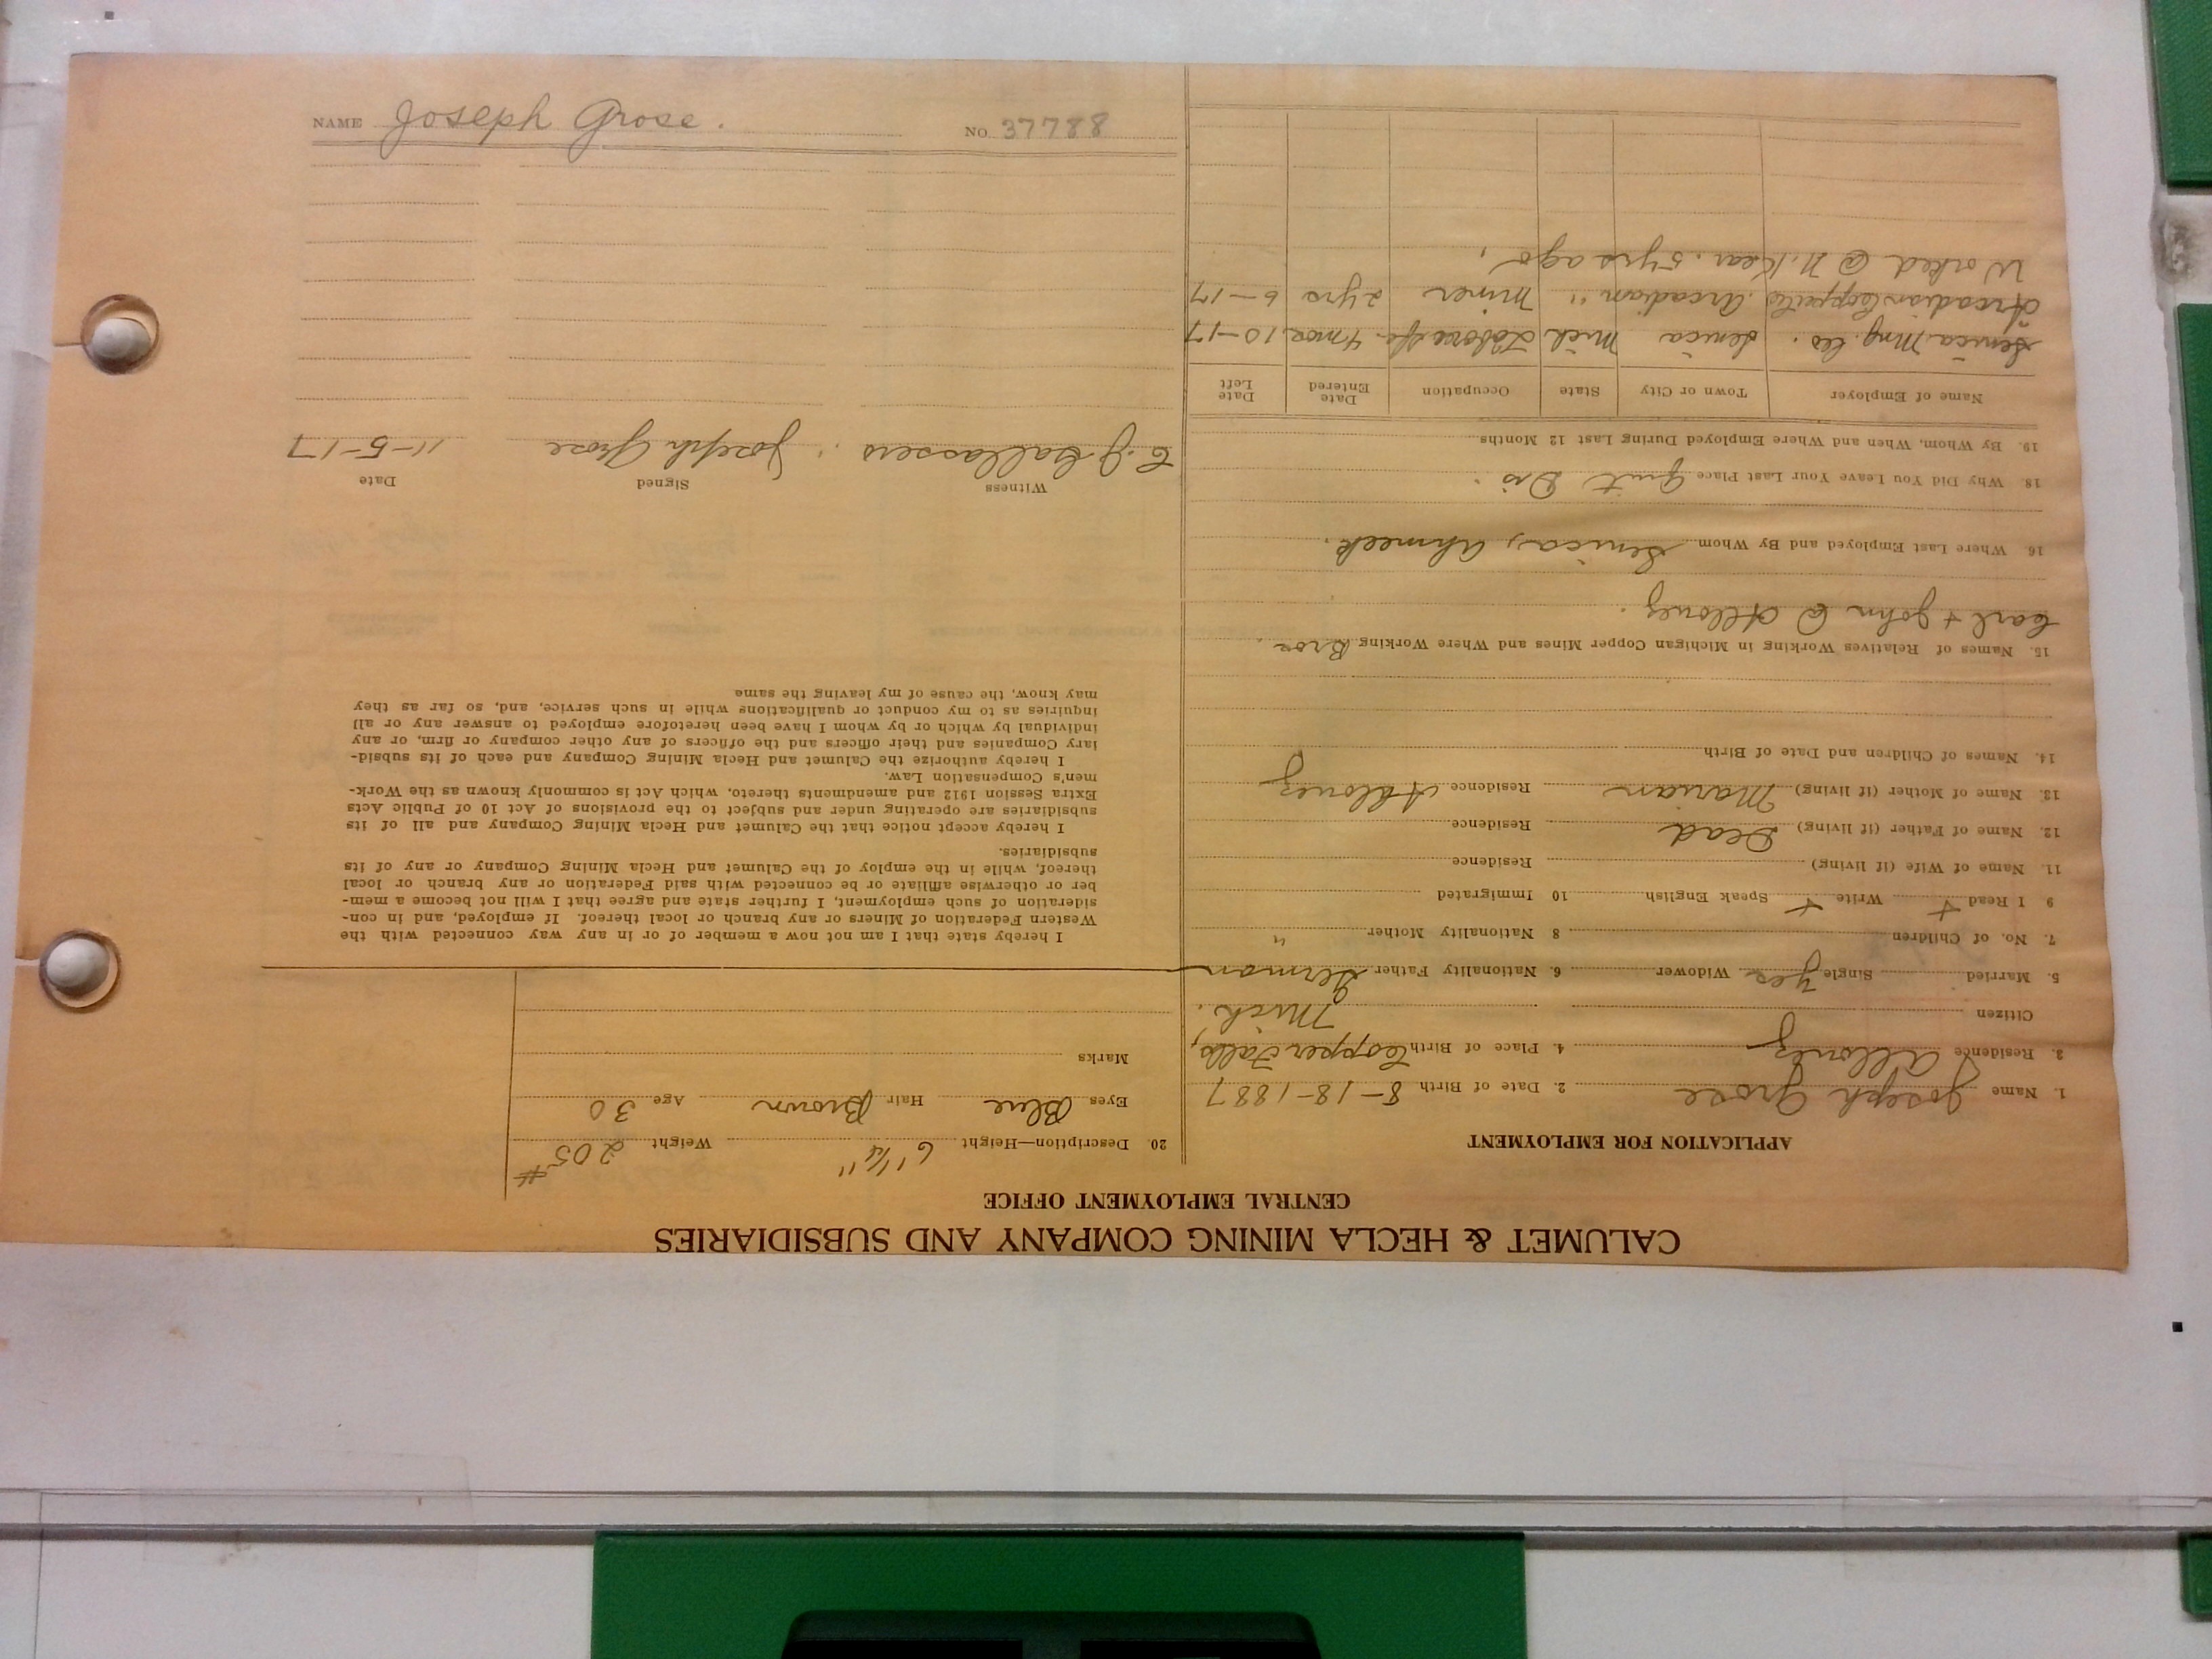 NAME Joseph Grose. NO. 37788
CALUMET & HECLA MINING COMPANY AND SUBSIDIARIES
CENTRAL EMPLOYMENT OFFICE
APPLICATION FOR EMPLOYMENT
1. Name Joseph Grose 2. Date of Birth 8-18-1887
3. Residence Allouez 4. Place of Birth Copper Falls,
Citizen Mich.
5. Married Single yes Widower 6. Nationality Father German
7. No. of Children 8 Nationality Mother "
9 I Read + Write + Speak English 10 Immigrated
11. Name of Wife (if living) Residence
12. Name of Father (if living) Dead Residence
13. Name of Mother (if living) Marian Residence Allouez
14. Names of Children and Date of Birth
15. Names of Relatives Working in Michigan Copper Mines and Where Working Bros.
Carl + John @ Allouez.
16. Where Last Employed and By Whom Senica, Ahmeek.
18. Why Did You Leave Your Last Place Quit Dis.
19. By Whom, When and Where Employed During Last 12 Months
Name of Employer Town or City State Occupation Date Entered Date Left
Senica Mng. Co. Senica Mich 4 mos. 10-17
Arcadian Arcadian " Miner 2 yrs 6-17
Worked @ N. Kear. 5 yrs ago.
20. Description—Height 6' 1/4" Weight 205#
Eyes Blue Hair Brown Age 30
Marks
I hereby state that I am not now a member of or in any way connected with the
Western Federation of Miners or any branch or local thereof. If employed, and in con-
sideration of such employment, I further state and agree that I will not become a mem-
ber or otherwise affiliate or be connected with said Federation or any branch or local
thereof, while in the employ of the Calumet and Hecla Mining Company or any of its
subsidiaries.
I hereby accept notice that the Calumet and Hecla Mining Company and all of its
subsidiaries are operating under and subject to the provisions of Act 10 of Public Acts
Extra Session 1912 and amendments thereto, which Act is commonly known as the Work-
men's Compensation Law.
I hereby authorize the Calumet and Hecla Mining Company and each of its subsid-
iary Companies and their officers and the officers of any other company or firm, or any
individual by which or by whom I have been heretofore employed to answer any or all
inquiries as to my conduct or qualifications while in such service, and, so far as they
may know, the cause of my leaving the same
Witness Signed Date
Joseph Grose 11-5-17